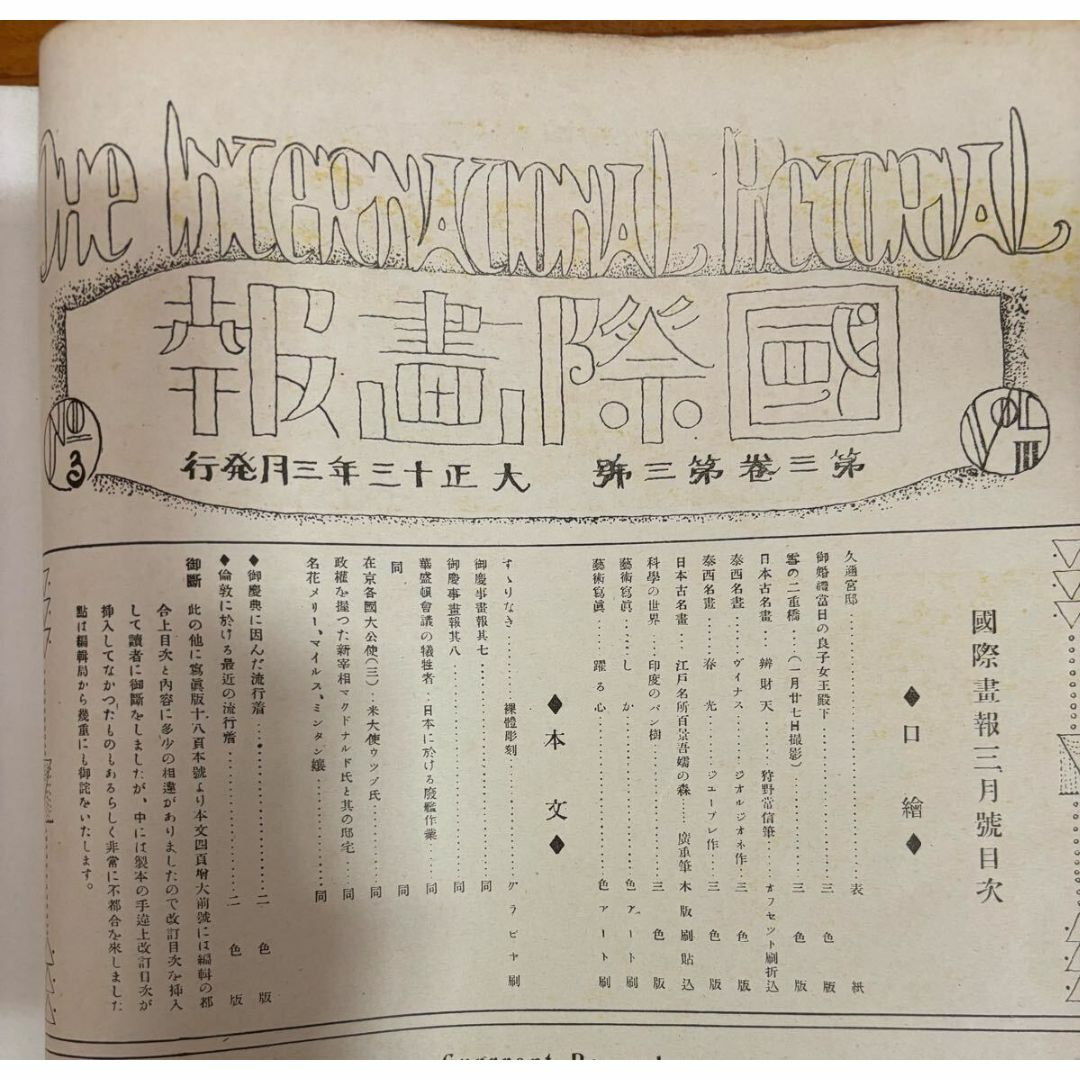 THE INTERNATIONAL PICTORIAL
國際畫報
No 3
VOL III
第三卷第三號 大正十三年三月発行
國際畫報三月號目次
◆口繪◆
久邇宮邸……表紙
御婚禮當日の良子女王殿下……三色版
雪の二重橋…(一月廿七日撮影)……三色版
日本古名畫……辨財天……狩野常信筆……オフセツト刷折込
泰西名畫……ヴイナス……ジオルジオネ作…三色版
泰西名畫……春光……ジユープレ作…三色版
日本古名畫…江戸名所百景吾嬬の森……廣重筆 木版刷貼込
科學の世界…印度のパン樹……三色版
藝術寫眞……しか……色アート刷
藝術寫眞 躍る心……色アート刷
◆本文◆
すゝりなき……裸體彫刻……グラビヤ刷
御慶事畫報其七……同
御慶事畫報其八……同
華盛頓會議の犠牲者…日本に於ける廢艦作業……同
同……同
在京各國大公使(三)…米大使ウツヅ氏……同
政權を握つた新宰相マクドナルド氏と其の邸宅……同
名花メリー、マイルス、ミンタン孃……同
◆御慶典に因んだ流行着……二色版
◆倫敦に於ける最近の流行着……二色版
御斷 此の他に寫眞版十八頁本號より本文四頁增大前號には編輯の都
合上目次と內容に多少の相違がありましたので改訂目次を挿入
して讀者に御斷をしましたが、中には製本の手違上改訂目次が
挿入してなかつたものもあるらしく非常に不都合を來しました
點は編輯局から幾重にも御詫をいたします。